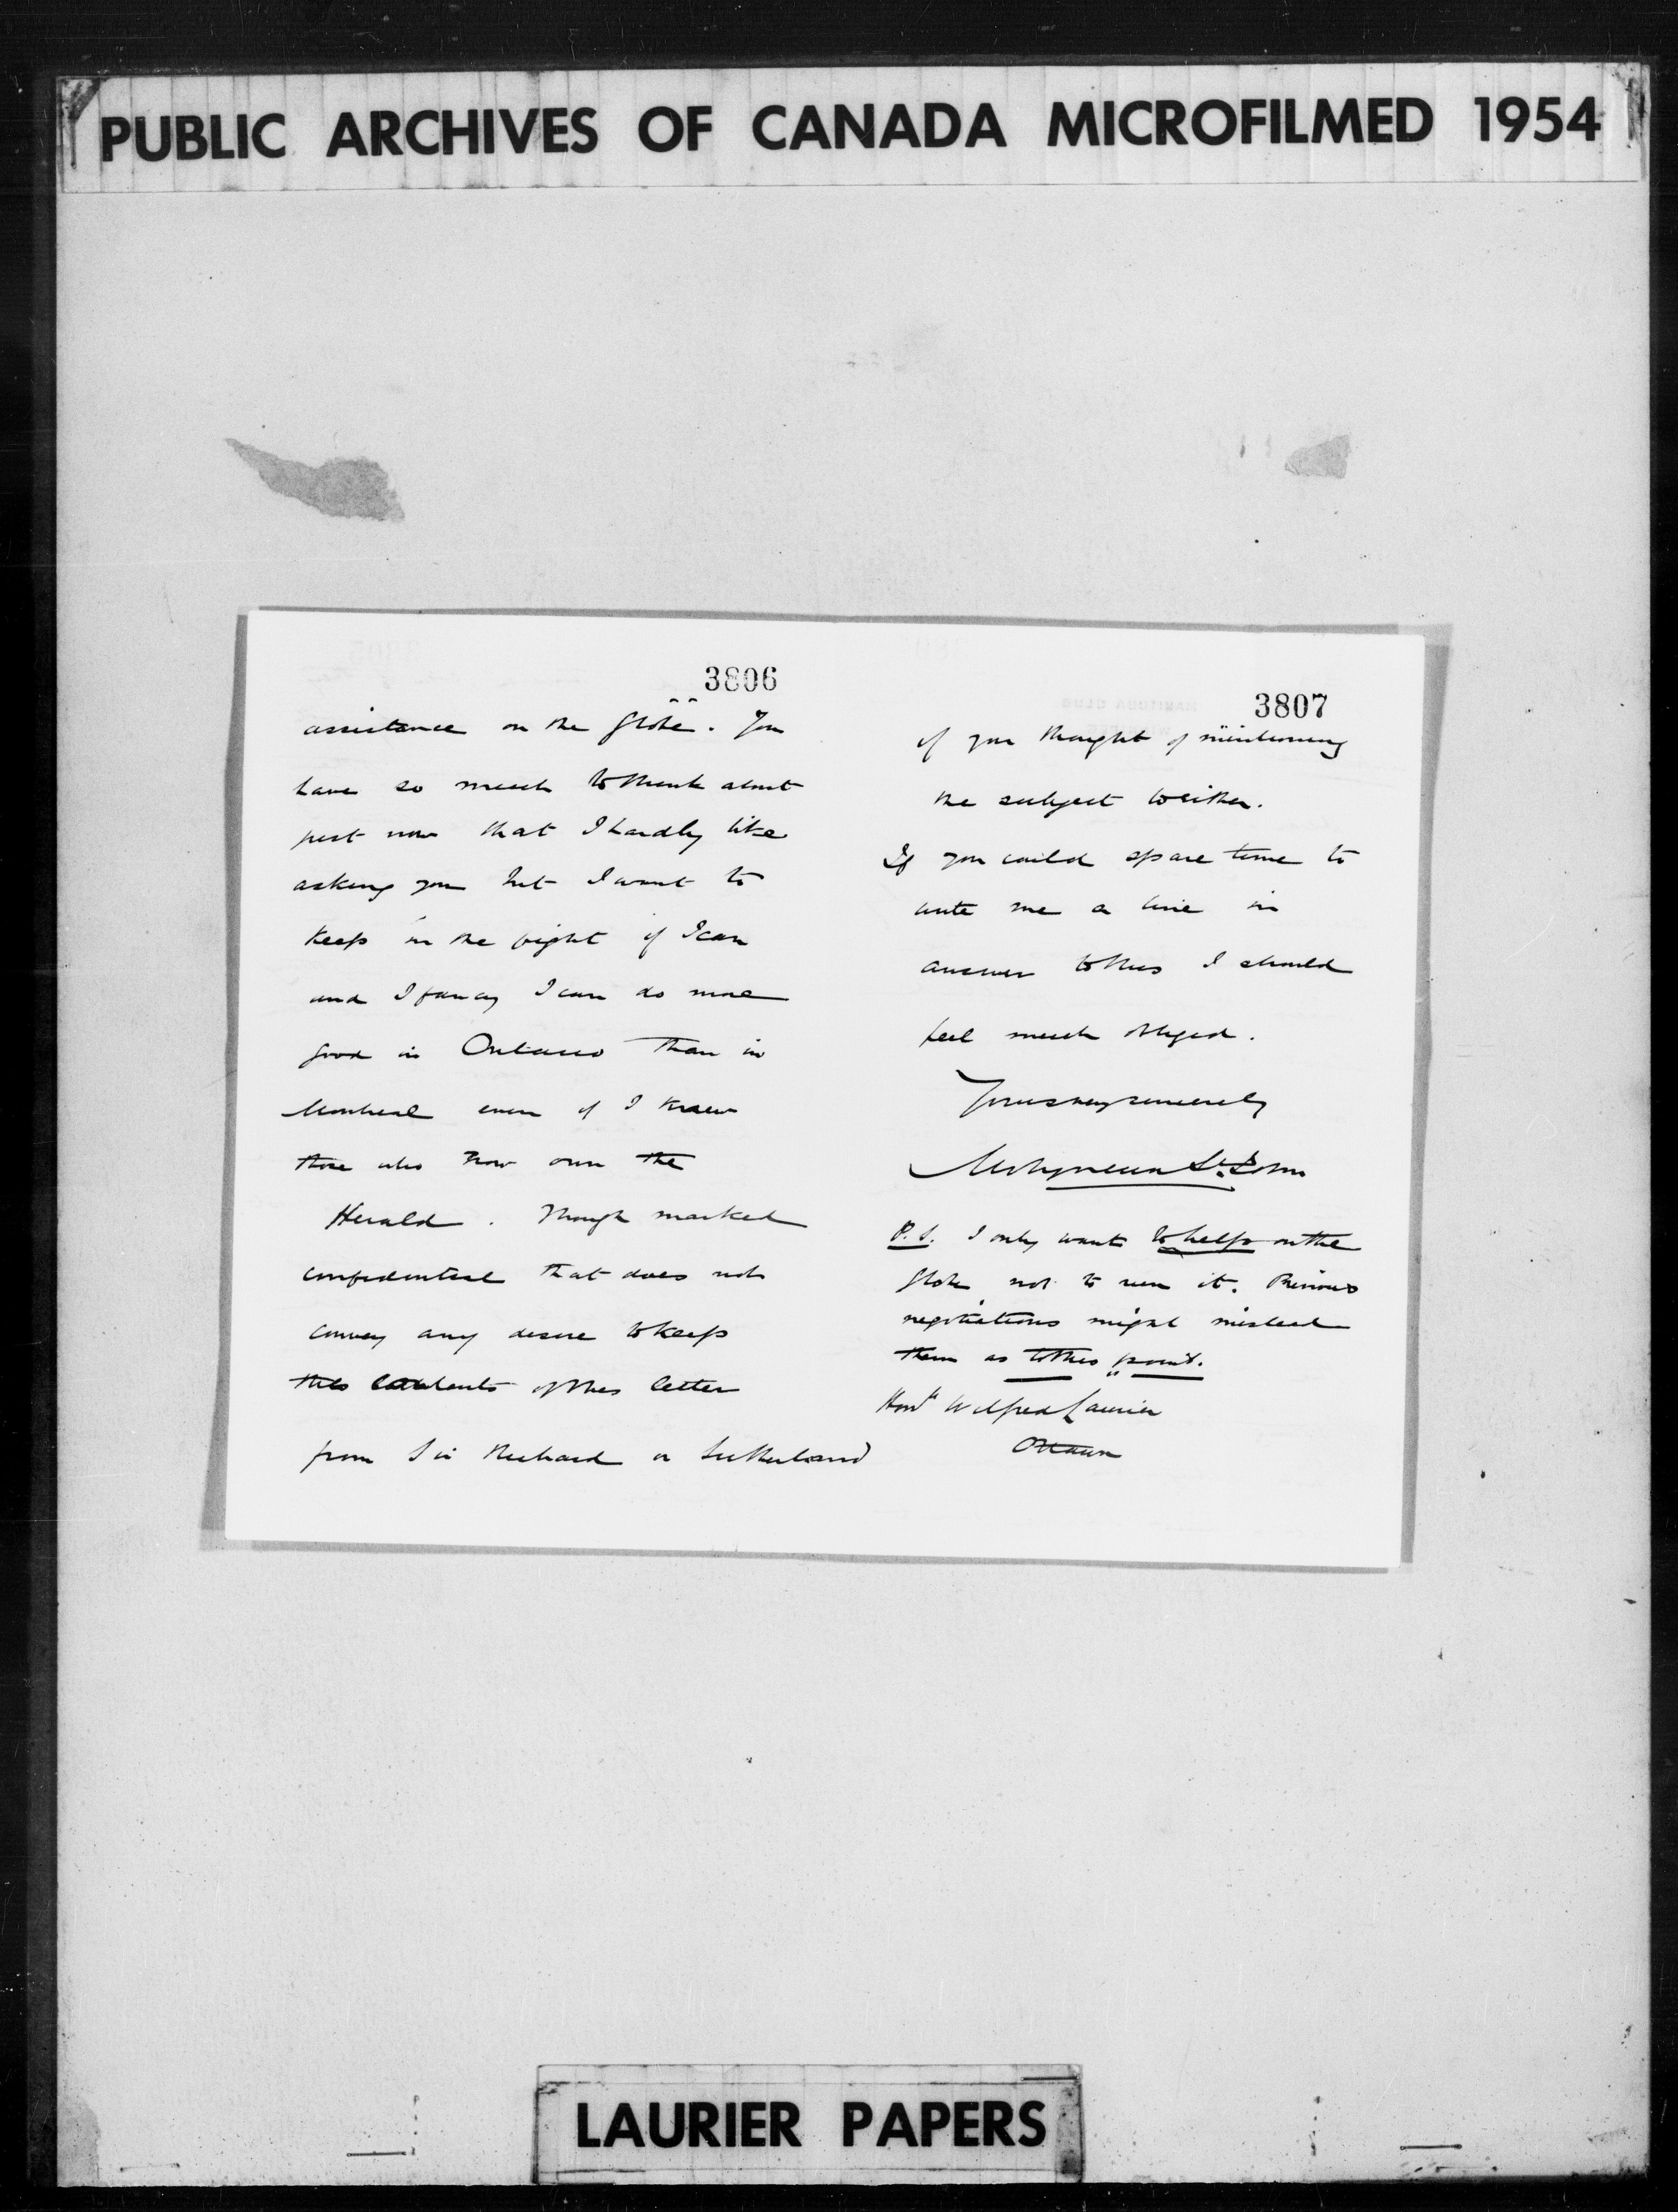 PUBLIC ARCHIVES OF CANADA MICROFILMED 1954
3806
assistance on the Globe. You
have so much to think about
just now that I hardly like
asking you but I want to
keep in the fight if I can
and I fancy I can do more
good in Ontario than in
Montreal even if I knew
those who now own the
Herald. Though marked
confidential that does not
convey any desire to keep
the contents of this letter
from Sir Richard or Sutherland
3807
if you thought of mentioning
the subject to either.
If you could spare time to
write me a line in
answer to this I should
feel much obliged.
Yours very sincerely
Molyneux St. John
P.S. I only want to help on the
Globe not to run it. Previous
negotiations might mislead
them as to this point.
Honble Wilfred Laurier
Ottawa
LAURIER PAPERS